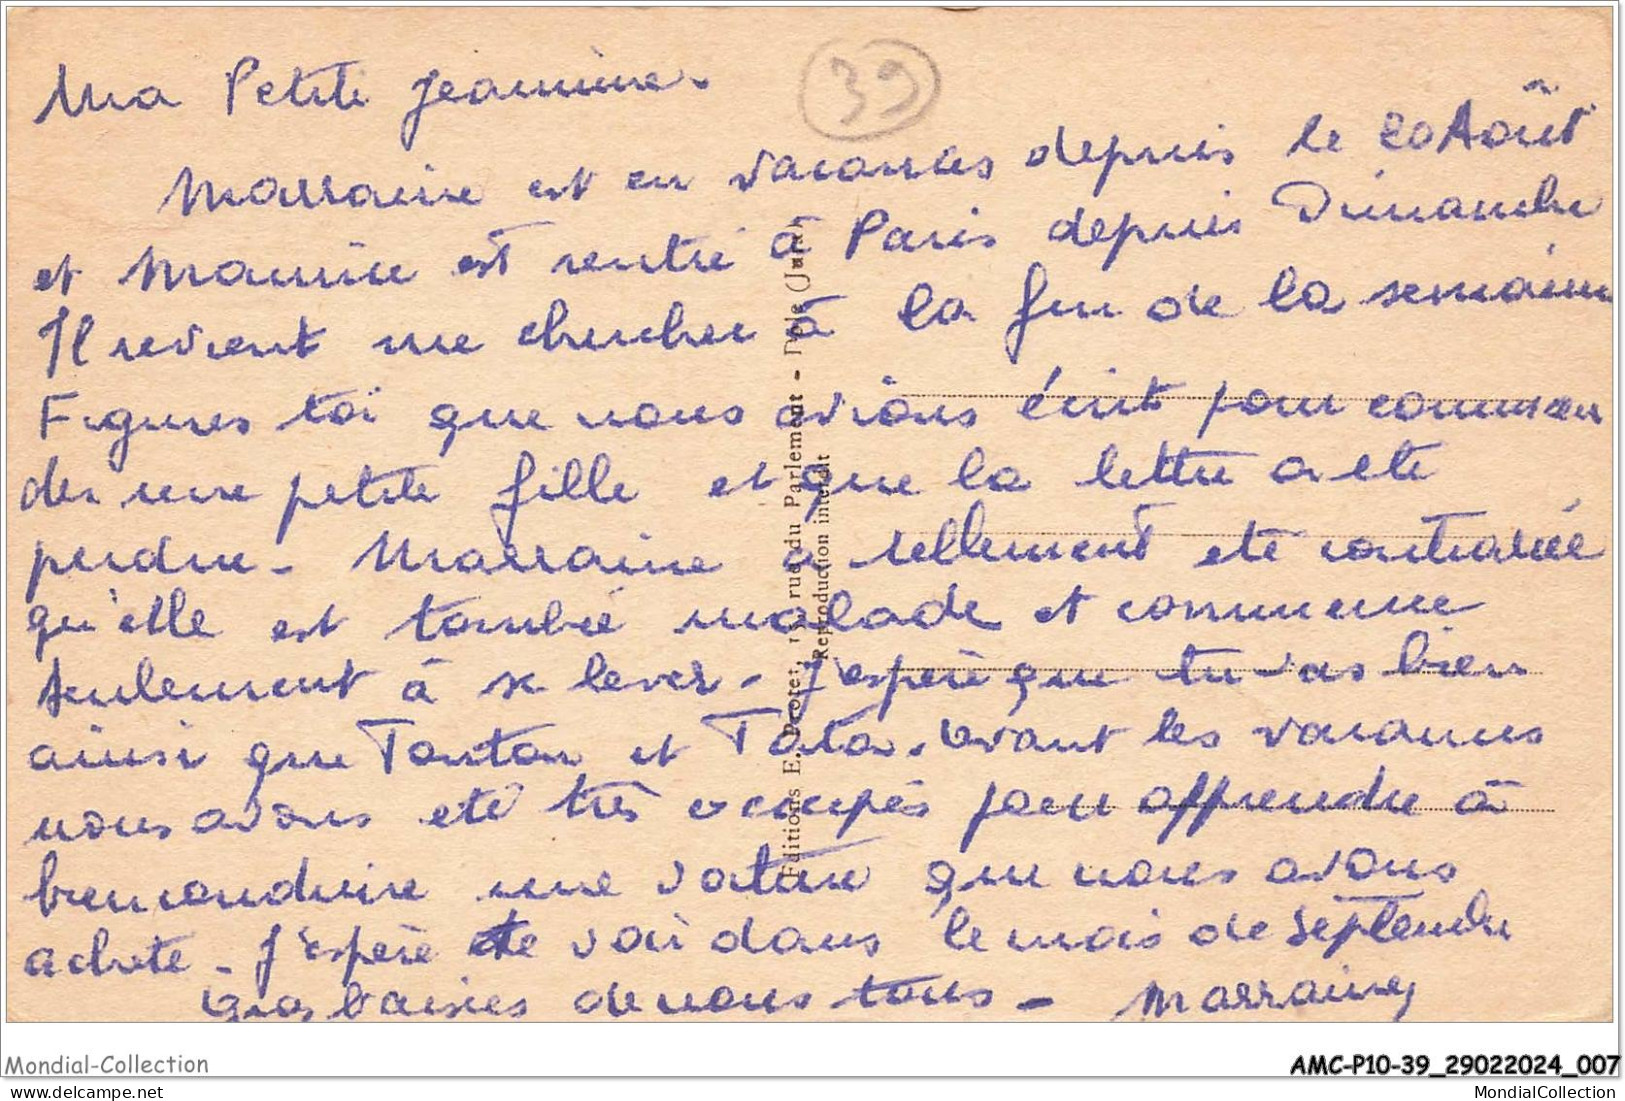 Ma Petite Jeannine.
39
Marraine est en vacances depuis le 20 Août
et Maurice est rentré à Paris depuis Dimanche
Il revient me chercher à la fin de la semaine
Figures toi que nous avions écrit pour comman
der une petite fille et que la lettre a ete
perdue. Marraine a tellement ete contrariée
qu'elle est tombée malade et commence
seulement à se lever. J'espère que tu vas bien
ainsi que Tonton et Tata. Avant les vacances
nous avons eté très occupés pour apprendre à
bien conduire une voiture que nous avons
achete. J'espère te voir dans le mois de Septembre
Gros baisers de nous tous. Marraine
Editions E. Protet, rue du Parlement - Dole (Jura)
Reproduction interdit
Mondial-Collection
AMC-P10-39_29022024_007
delcampe.net
MondialCollection